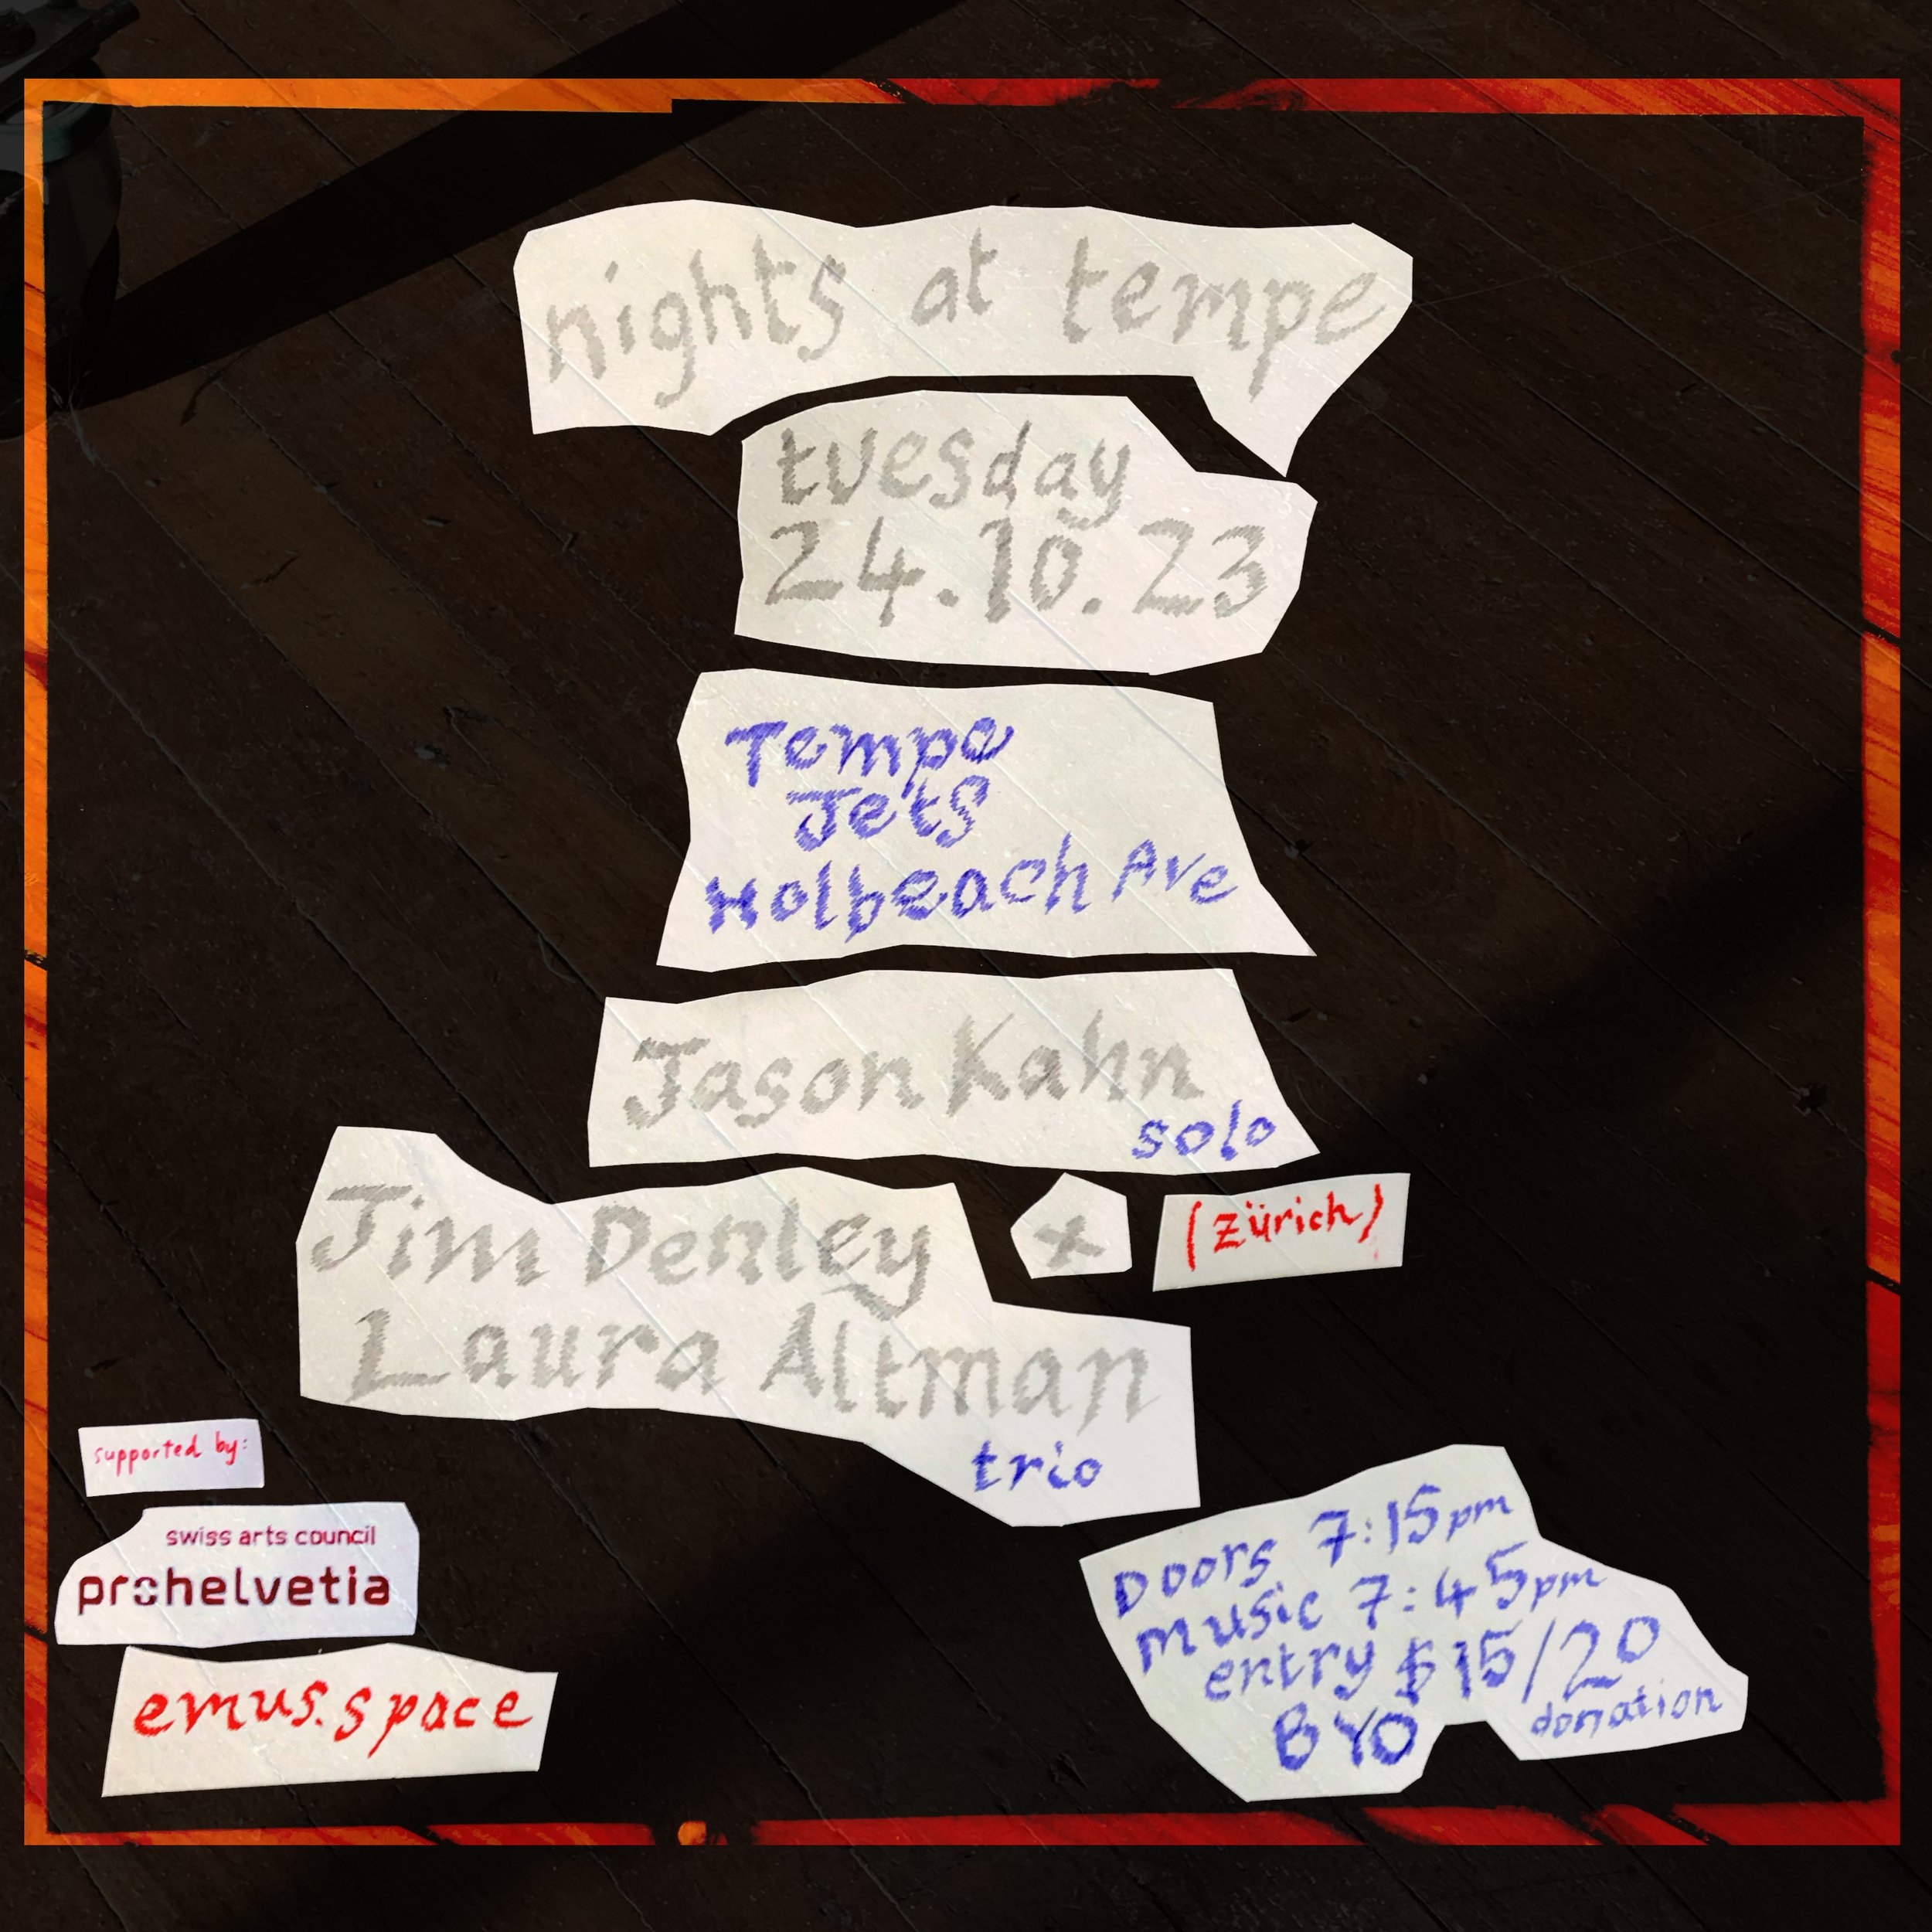 nights at tempe
tuesday
24.10.23
Tempe
Jets
Holbeach Ave
Jason Kahn
solo
(Zürich)
Jim Denley +
Laura Altman
trio
supported by:
swiss arts council
prohelvetia
emus.space
Doors 7:15pm
music 7:45pm
entry $15/20
donation
BYO